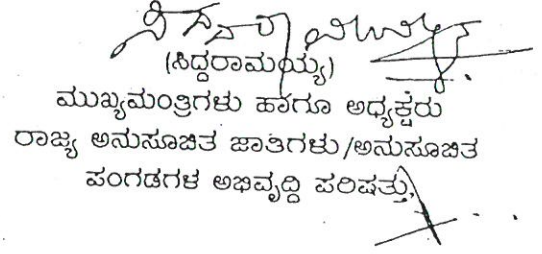 (ಸಿದ್ದರಾಮಯ್ಯ)
ಮುಖ್ಯಮಂತ್ರಿಗಳು ಹಾಗೂ ಅಧ್ಯಕ್ಷರು
ರಾಜ್ಯ ಅನುಸೂಚಿತ ಜಾತಿಗಳು/ಅನುಸೂಚಿತ
ಪಂಗಡಗಳ ಅಭಿವೃದ್ಧಿ ಪರಿಷತ್ತು,